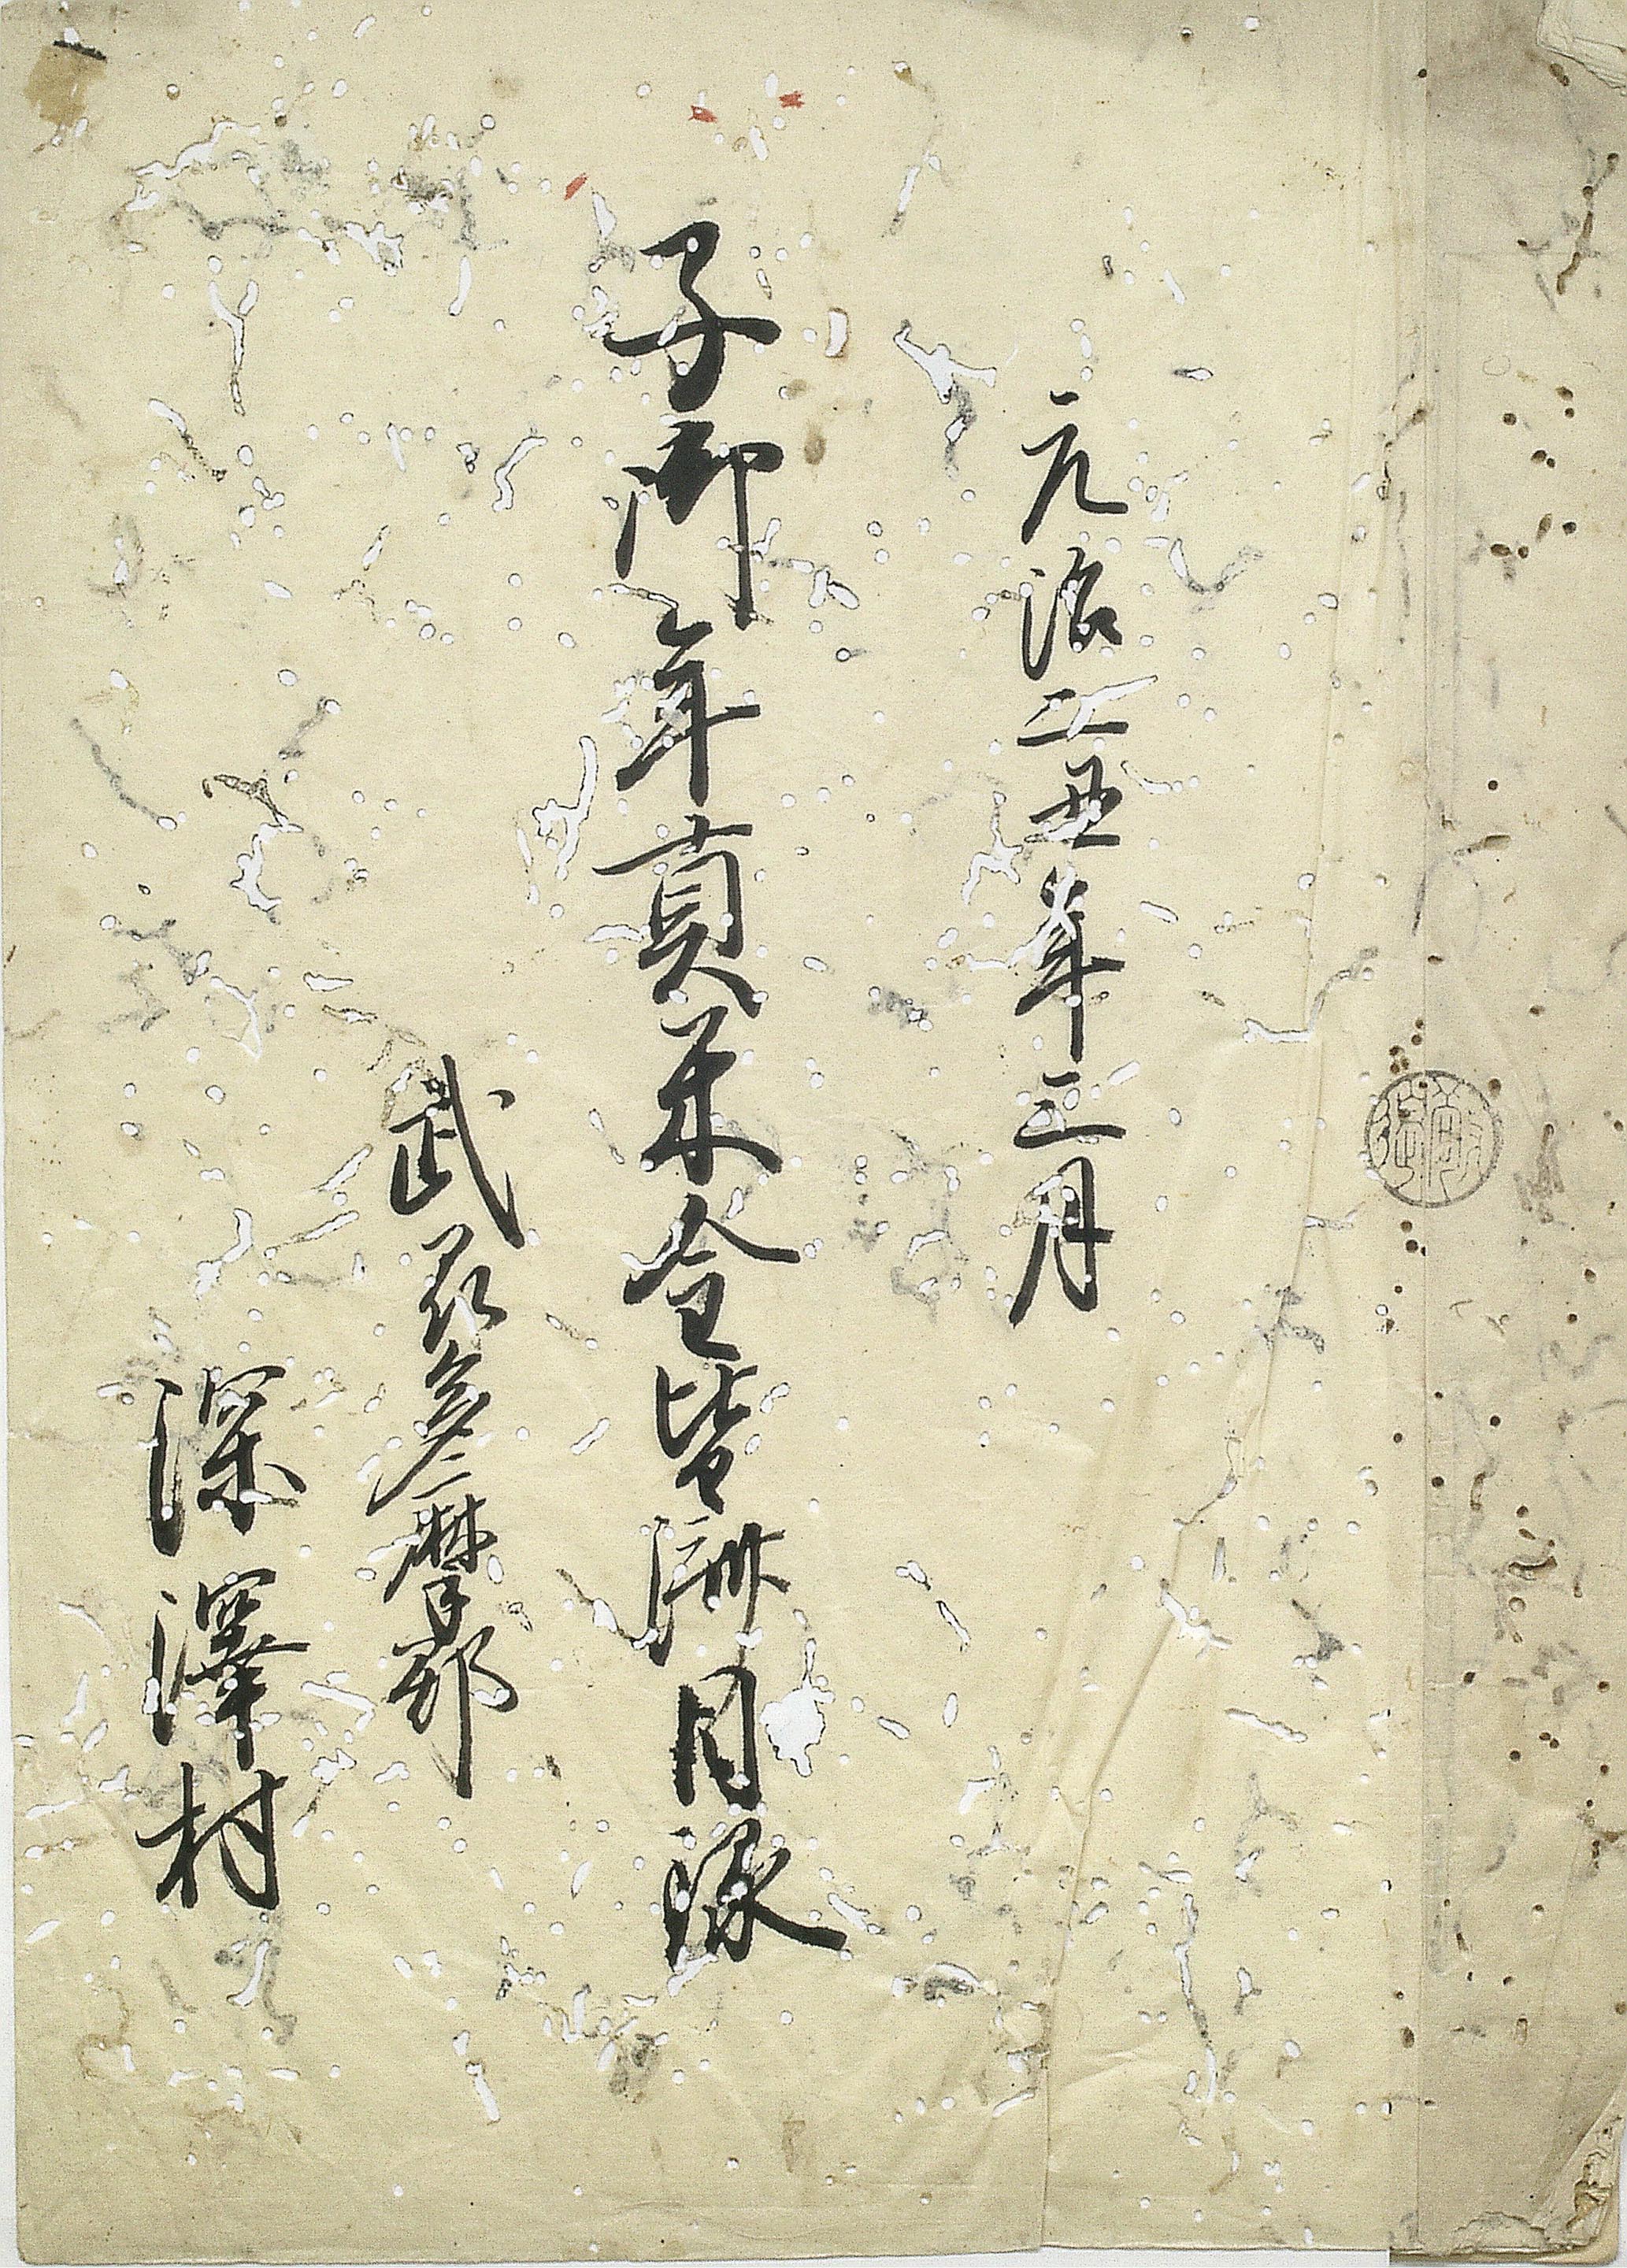 元治二丑年三月
子御年貢米金皆済目録
武刕多摩郡
深澤村